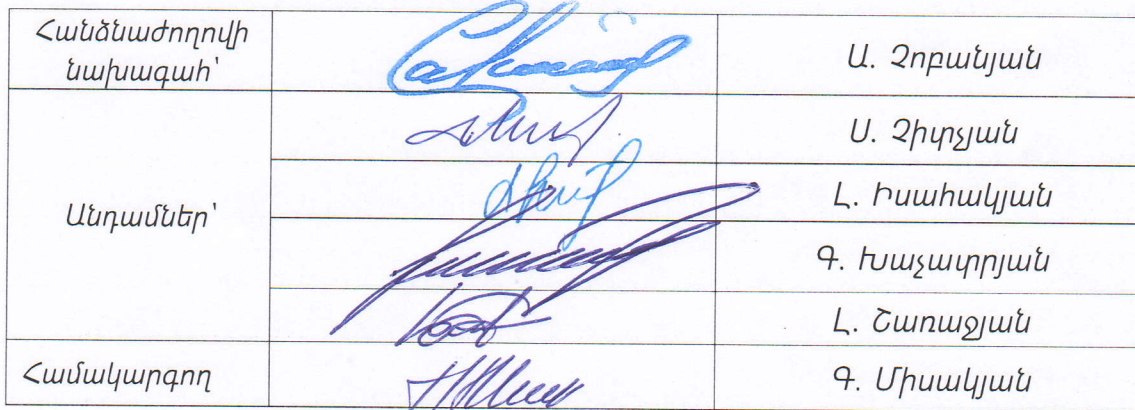 Հանձնաժողովի
նախագահ՝
Ա. Չոբանյան
Անդամներ՝
Ս. Չիփչյան
Լ. Իսահակյան
Գ. Խաչատրյան
Լ. Շառաջյան
Համակարգող
Գ. Միսակյան